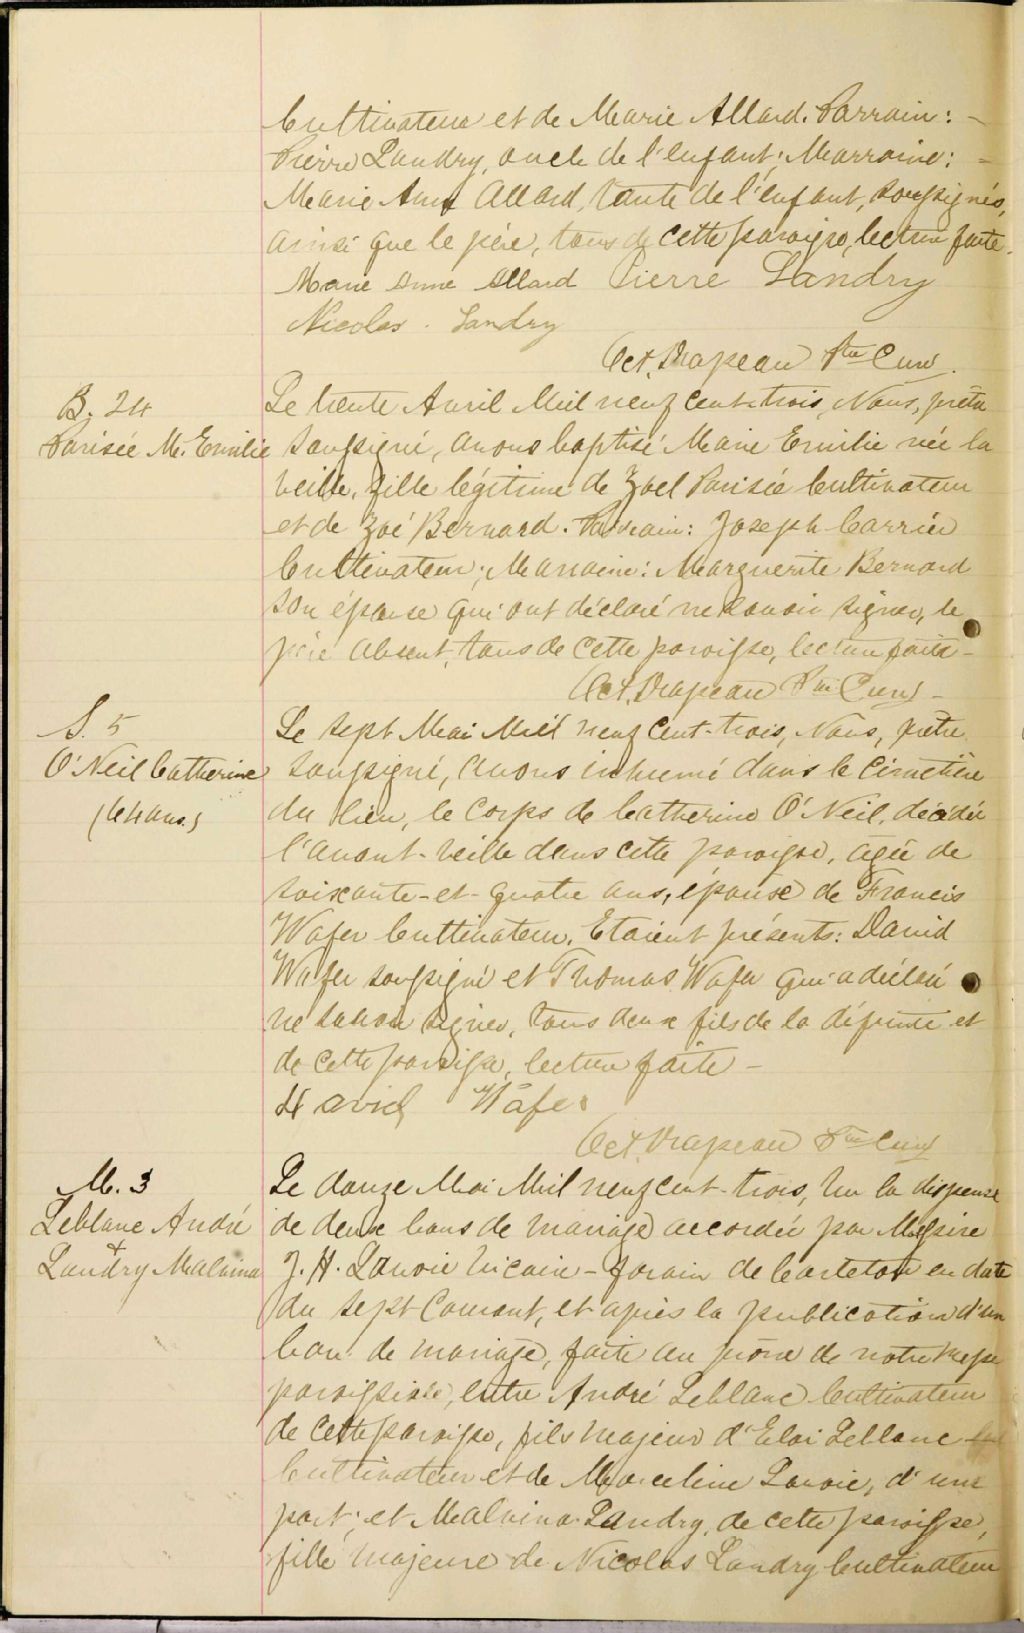 Cultivateur et de Marie Allard. Parrain: -
Pierre Landry, oncle de l'enfant; Marraine: -
Marie Anne Allard, tante de l'enfant, soussignés,
ainsi que le père, tous de cette paroisse, lecture faite.
Marie Anne Allard Pierre Landry
Nicolas Landry
Oct. Drapeau Ptre Curé.
B. 24
Parisée M. Emilie
Le trente Avril Mil neuf cent-trois, Nous, prêtre
soussigné, avons baptisé Marie Emilie née la
veille, fille légitime de Zoel Parisée Cultivateur
et de Zoé Bernard. Parrain: Joseph Carrier
Cultivateur; Marraine: Marguerite Bernard
son épouse qui ont déclaré ne savoir signer, le
père absent, tous de cette paroisse, lecture faite -
Oct. Drapeau Ptre Curé -
S. 5
O'Neil Catherine
(64 ans.)
Le sept Mai Mil neuf cent-trois, Nous, prêtre
soussigné, avons inhumé dans le cimetière
du lieu, le corps de Catherine O'Neil, décédée
l'avant-veille dans cette paroisse, agée de
soixante-et-quatre ans, épouse de Francis
Wafer Cultivateur. Etaient présents: David
Wafer soussigné et Thomas Wafer qui a déclaré
ne savoir signer, tous deux fils de la défunte et
de cette paroisse, lecture faite -
David Wafer
Oct. Drapeau Ptre Curé
M. 3
Leblanc André
+
Landry Malvina
Le douze Mai Mil neuf cent-trois, Vu la dispense
de deux bans de mariage accordée par Messire
J. H. Lavoie Vicaire-forain de Carleton en date
du sept Courant, et après la publication d'un
ban de mariage, faite au prône de notre Messe
paroissiale, entre André Leblanc Cultivateur
de cette paroisse, fils majeur d'Eloi Leblanc
Cultivateur et de Marceline Lavoie, d'une
part; et Malvina Landry, de cette paroisse,
fille majeure de Nicolas Landry Cultivateur